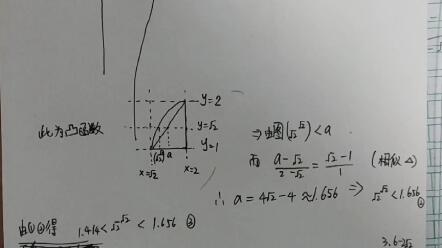 此为凸函数
y=2
y=√2
y=1
x=√2
x=2
a
⇒由图(√2^√2)<a
而 (a-√2)/(2-√2) = (√2-1)/1 (相似△)
∴ a=4√2-4≈1.656 ⇒ √2^√2<1.656 ②
由①②得 1.414<√2^√2<1.656 ③
3.6-2√2